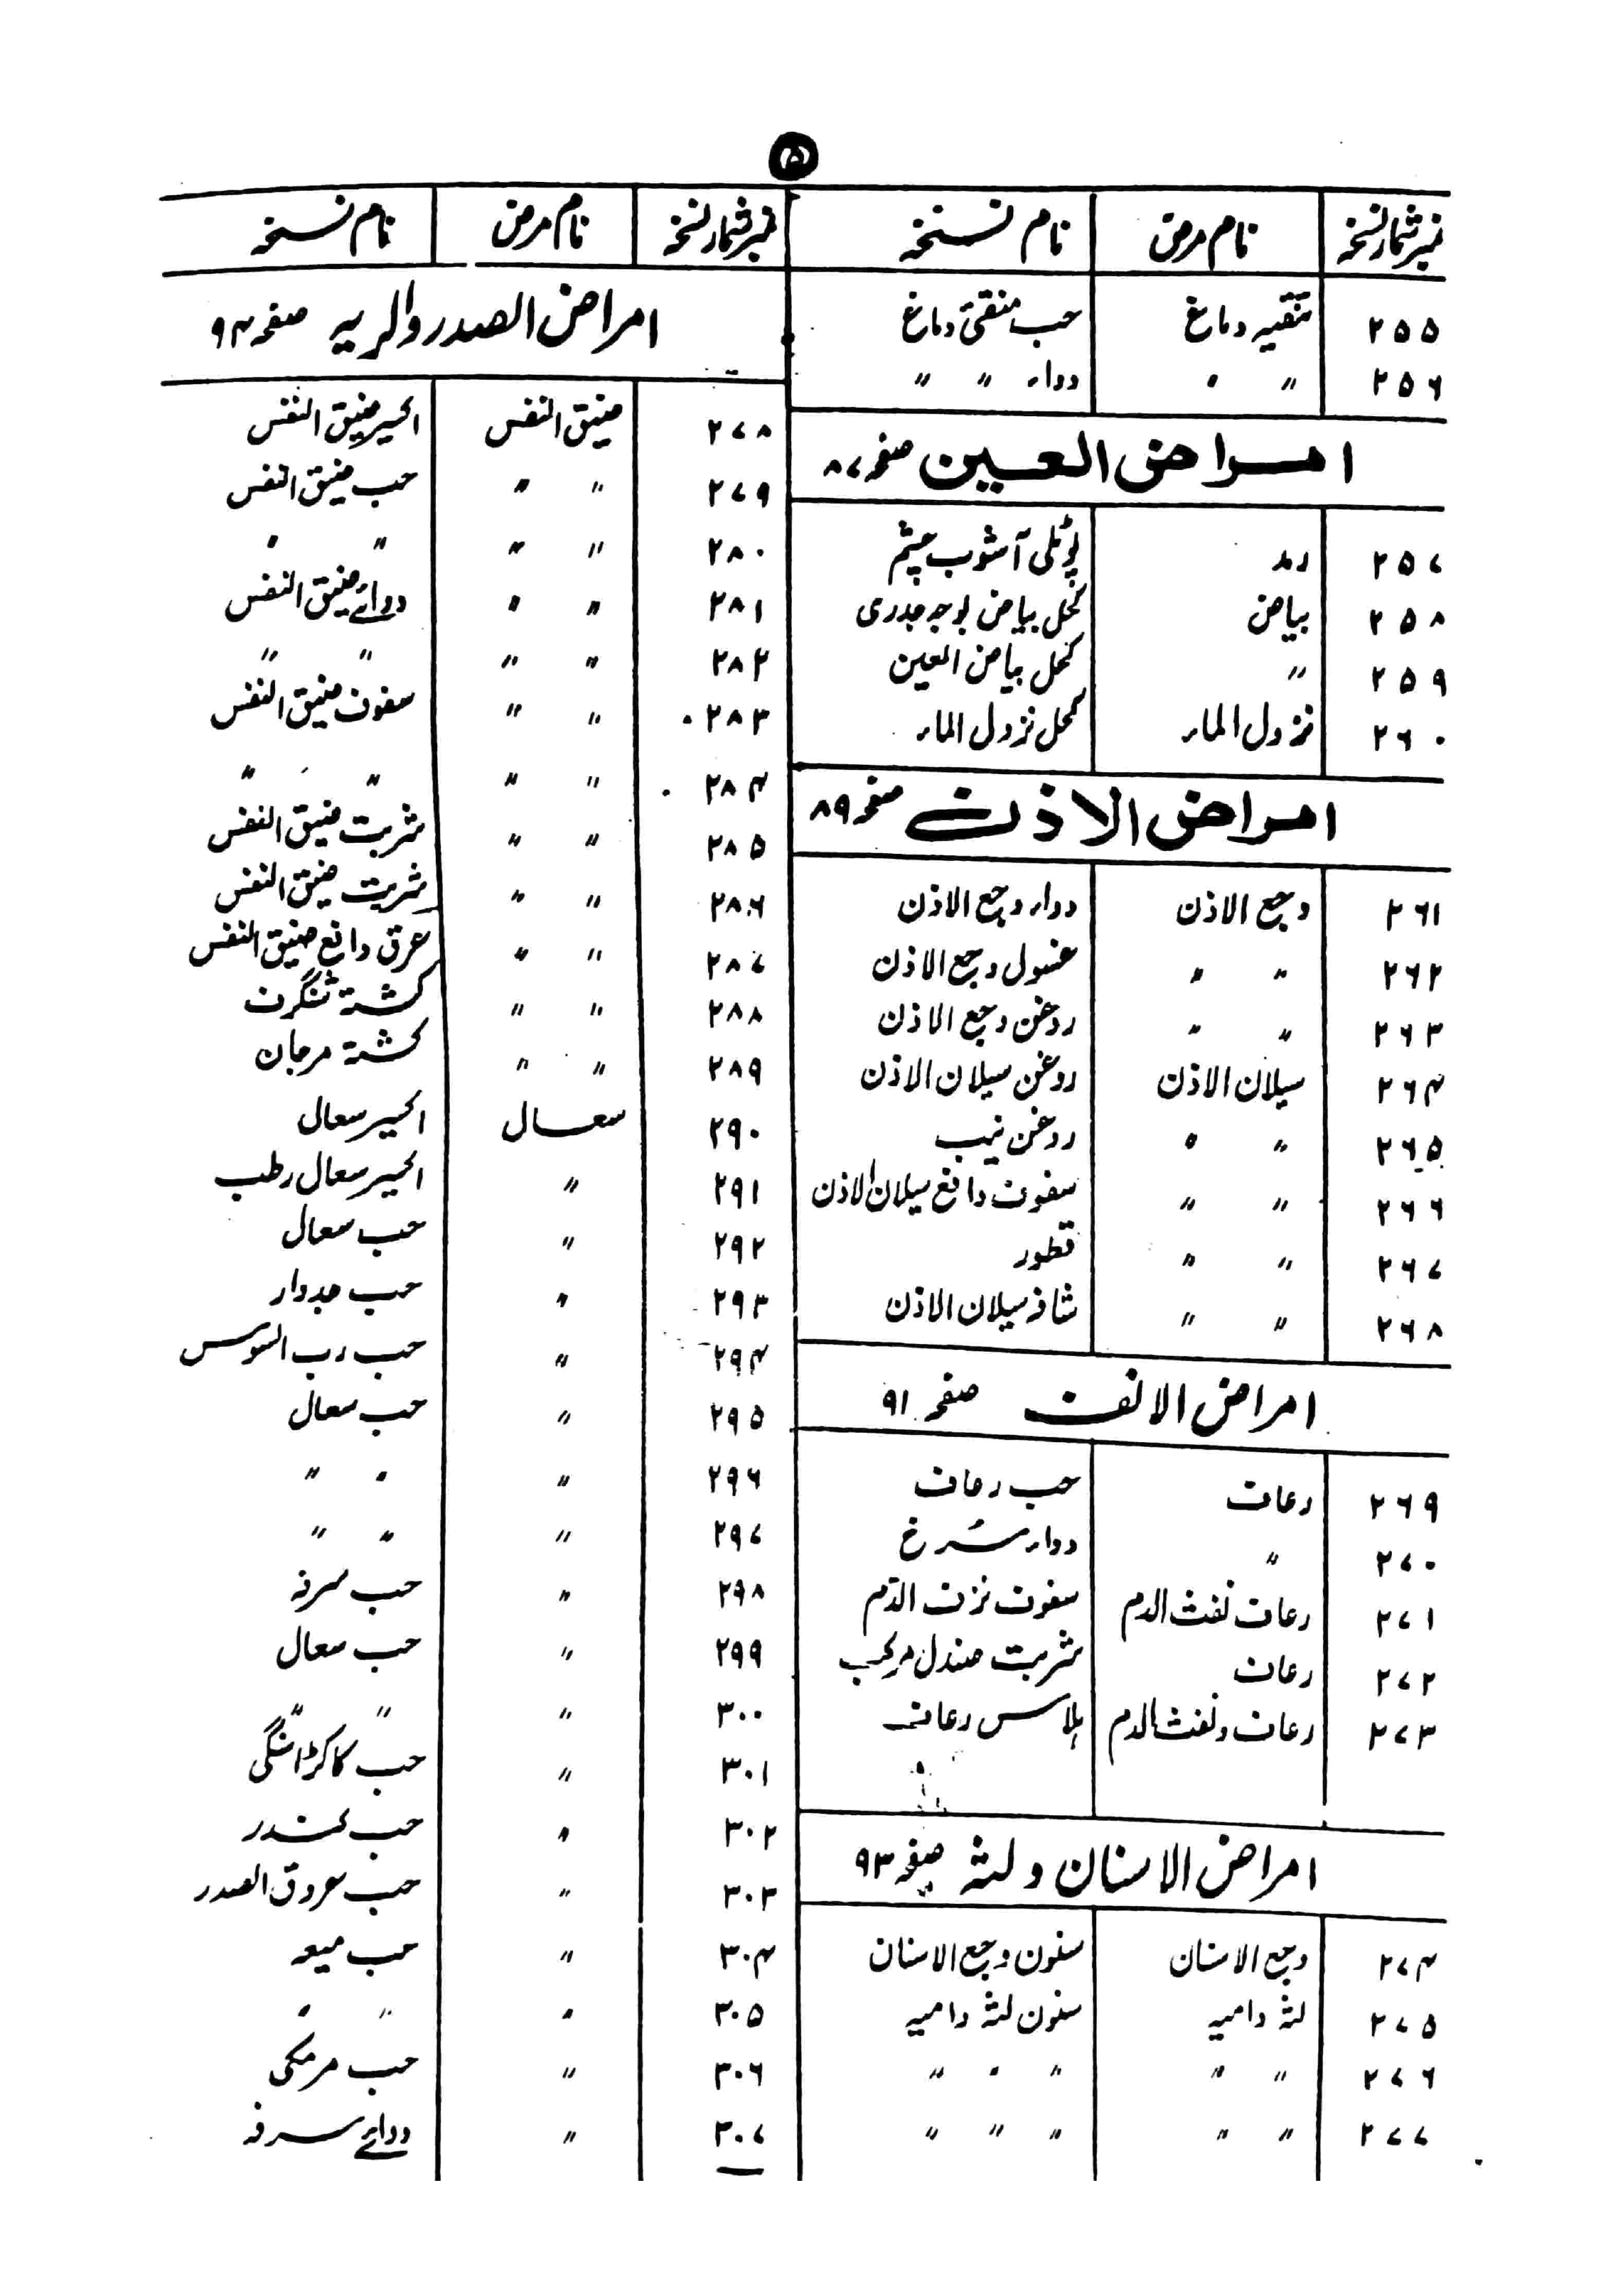 ۵
نمبرشمار نسخہ نام مرض نام نسخہ
۲۵۵ تنقیہ دماغ حب منقیٔ دماغ
۲۵۶〃 〃 دواء 〃 〃
امراض العین صفحہ ۸۷
۲۵۷ رمد پوٹلی آشوب چشم
۲۵۸ بیاض کحل بیاض بوجہ جدری
۲۵۹ 〃 کحل بیاض العین
۲۶۰ نزول الماء کحل نزول الماء
امراض الاذن صفحہ ۸۹
۲۶۱ وجع الاذن دواء وجع الاذن
۲۶۲ 〃 〃 غسول وجع الاذن
۲۶۳ 〃 〃 روغن وجع الاذن
۲۶۴ سیلان الاذن روغن سیلان الاذن
۲۶۵ 〃 〃 روغن نیب
۲۶۶ 〃 〃 سفوف دافع سیلان الاذن
۲۶۷ 〃 〃 قطور
۲۶۸ 〃 〃 شافہ سیلان الاذن
امراض الانف صفحہ ۹۱
۲۶۹ رعاف حب رعاف
۲۷۰ 〃 دواء سُرخ
۲۷۱ رعاف نفث الدم سفوف نزف الدّم
۲۷۲ رعاف شربت صندل مرکب
۲۷۳ رعاف ونفث الدم ہلاس رعاف
امراض الاسنان و لثہ صفحہ ۹۳
۲۷۴ وجع الاسنان سنون وجع الاسنان
۲۷۵ لثہ دامیہ سنون لثہ دامیہ
۲۷۶ 〃 〃 〃 〃 〃
۲۷۷ 〃 〃 〃 〃 〃
نمبرشمار نسخہ نام مرض نام نسخہ
امراض الصدر والریہ صفحہ ۹۴
۲۷۸ ضیق النفس اکسیر ضیق النفس
۲۷۹ 〃 〃 حب ضیق النفس
۲۸۰ 〃 〃 〃 〃
۲۸۱ 〃 〃 دوائے ضیق النفس
۲۸۲ 〃 〃 〃 〃
۲۸۳ 〃 〃 سفوف ضیق النفس
۲۸۴ 〃 〃 〃 〃 〃
۲۸۵ 〃 〃 شربت ضیق النفس
۲۸۶ 〃 〃 شربت ضیق النفس
۲۸۷ 〃 〃 عرق دافع ضیق النفس
۲۸۸ 〃 〃 کشتہ شنگرف
۲۸۹ 〃 〃 کشتہ مرجان
۲۹۰ سعال اکسیر سعال
۲۹۱ 〃 اکسیر سعال رطب
۲۹۲ 〃 حب سعال
۲۹۳ 〃 حب جدوار
۲۹۴ 〃 حب رب السوس
۲۹۵ 〃 حب سعال
۲۹۶ 〃 〃 〃
۲۹۷ 〃 〃 〃
۲۹۸ 〃 حب سرفہ
۲۹۹ 〃 حب سعال
۳۰۰ 〃 〃 〃
۳۰۱ 〃 حب کاکڑاسنگی
۳۰۲ 〃 حب کندر
۳۰۳ 〃 حب عروق الصدر
۳۰۴ 〃 حب میعہ
۳۰۵ 〃 〃 〃
۳۰۶ 〃 حب مرمکی
۳۰۷ 〃 دوائے سرفہ